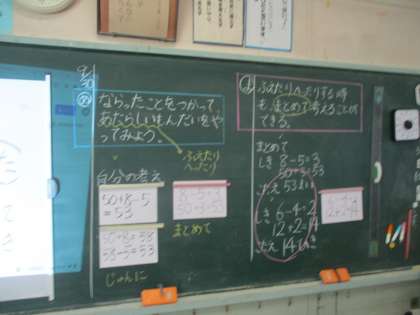 9/30
ならったことをつかって、
あたらしいもんだいをや
ってみよう。
ふえたり
へったり
自分の考え
50+8-5
=53
50+8=58
58-5=53
じゅんに
8-5=3
50+3=53
まとめて
ふえたりへったりする時
も、まとめて考えることが
できる。
まとめて
しき 8-5=3
50+3=53
こたえ 53まい
しき 6-4=2
12+2=14
こたえ 14